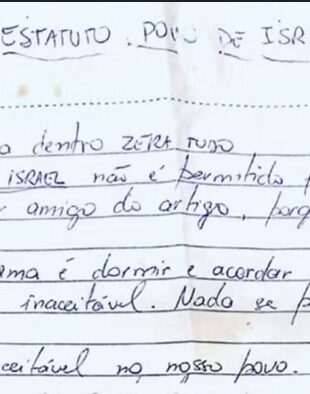 ESTATUTO. POVO DE ISR
a dentro ZERA TUDO,
ISRAEL não é permitido p
r amigo do artigo, porq
ma é dormir e acordar
inaceitável. Nada se p
ceitável no nosso povo.